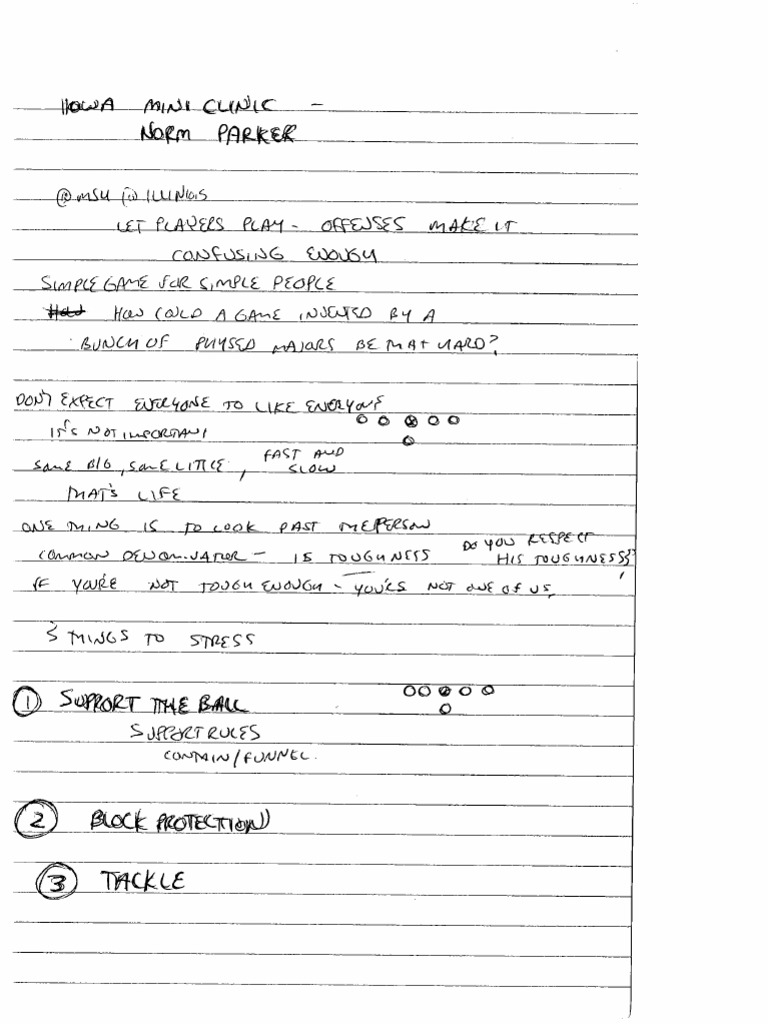 IOWA MINI CLINIC –
NORM PARKER
@ MSU @ ILLINOIS
LET PLAYERS PLAY – OFFENSES MAKE IT
CONFUSING ENOUGH
SIMPLE GAME FOR SIMPLE PEOPLE
HOW COULD A GAME INVENTED BY A
BUNCH OF PHYSED MAJORS BE THAT HARD?
DON'T EXPECT EVERYONE TO LIKE EVERYONE
IT'S NOT IMPORTANT
SOME BIG, SOME LITTLE, FAST AND SLOW
THAT'S LIFE
ONE THING IS TO LOOK PAST THE PERSON
COMMON DENOMINATOR – IS TOUGHNESS DO YOU RESPECT HIS TOUGHNESS?
IF YOU'RE NOT TOUGH ENOUGH – YOU'RE NOT ONE OF US,
3 THINGS TO STRESS
① SUPPORT THE BALL
SUPPORT RULES
CONTAIN/FUNNEL.
② BLOCK PROTECTION
③ TACKLE